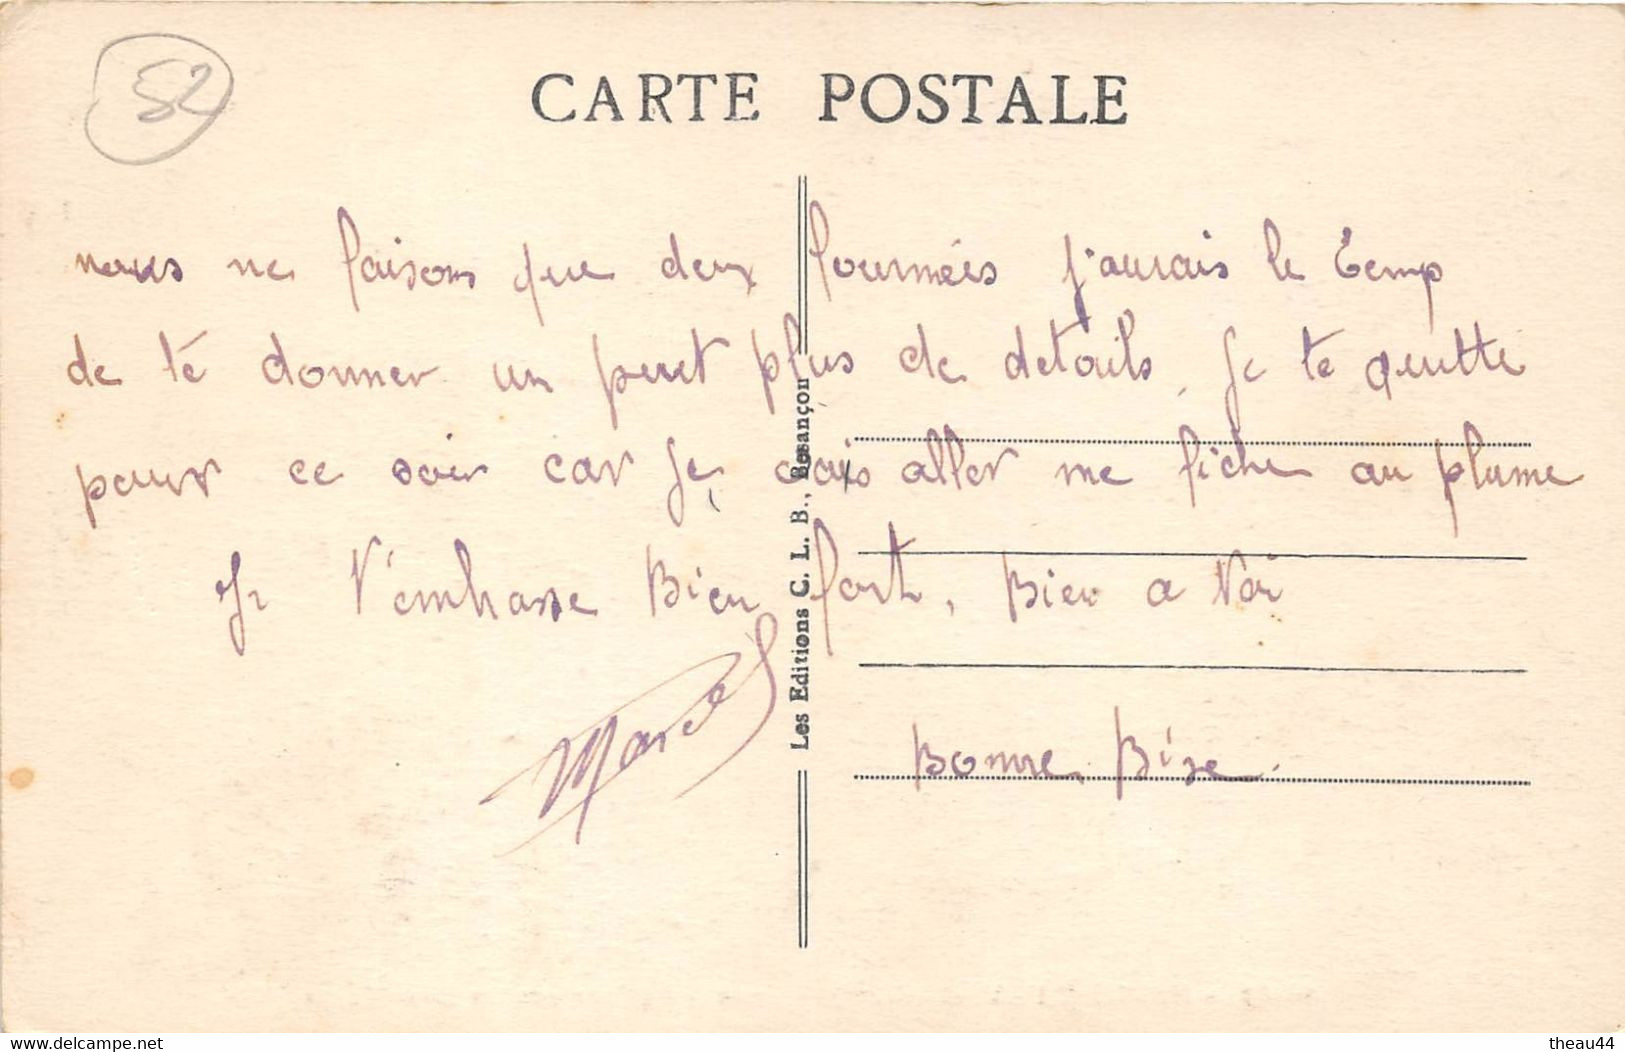 52
CARTE POSTALE
nous ne faisons que deux fournées j'aurais le temp
de té donner un peut plus de details, je te quitte
pour ce soir car je vais aller me fiche au plume
Je t'embrasse Bien fort, Bien a toi
Marcel
Bonne Bise.
Les Editions C. L. B., Besançon
www.delcampe.net
theau44